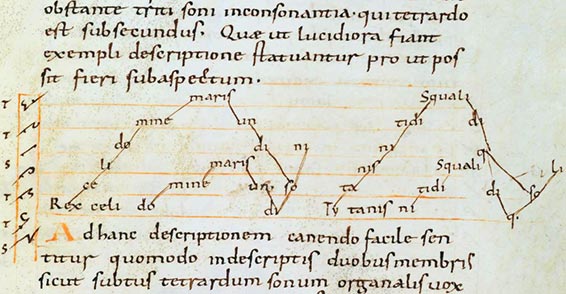 obstante triti soni inconsonantia. qui tetrardo
est subsecundus. Quæ ut lucidiora fiant
exempli descriptione statuantur pro ut pos
sit fieri subaspectum.
T maris Squali
T mine un tidi di
S do di ni nis q
T li maris ta Squali li
T ce mine un so tidi di so
S Rex celi do di Ty tanis ni q.
Ad hanc descriptionem canendo facile sen
titur quomodo indescriptis duobus membris
sicut subtus tetrardum sonum organalis vox